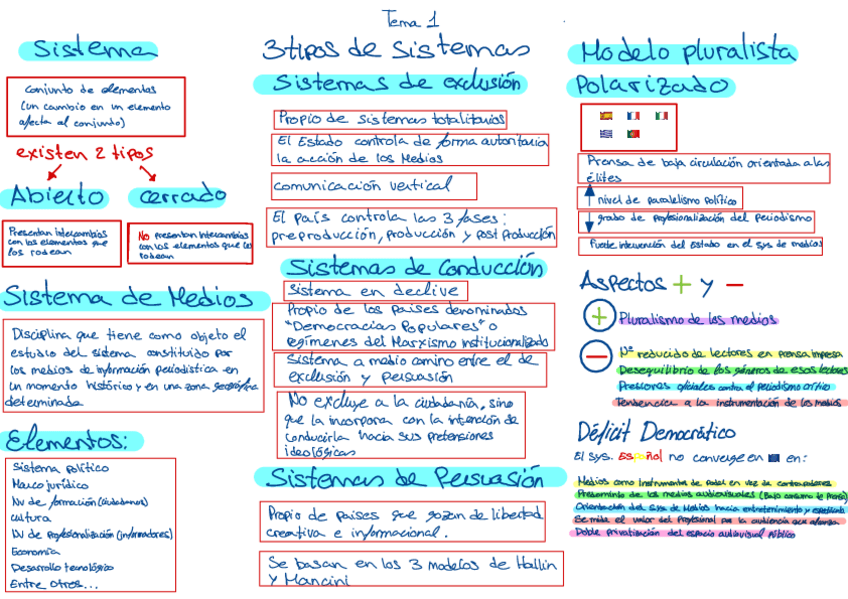 Tema 1
Sistema
conjunto de elementos
(un cambio en un elemento
afecta al conjunto)
existen 2 tipos
Abierto
cerrado
Presentan intercambios
con los elementos que
los rodean
No presentan intercambios
con los elementos que les
rodean
Sistema de Medios
Disciplina que tiene como objeto el
estudio del sistema constituido por
los medios de información periodística en
un momento histórico y en una zona geográfica
determinada
Elementos:
Sistema político
Marco jurídico
Nv de formación (ciudadanos)
cultura
Nv de Profesionalización (informadores)
Economía
Desarrollo tecnológico
Entre otros...
3 tipos de Sistemas
Sistemas de exclusión
Propio de sistemas totalitarios
El Estado controla de forma autoritaria
la acción de los Medios
comunicación vertical
El país controla las 3 fases:
preproducción, producción y post producción
Sistemas de Conducción
Sistema en declive
Propio de los países denominados
"Democracias Populares" o
regímenes del Marxismo institucionalizado
Sistema a medio camino entre el de
exclusión y persuasión
No excluye a la ciudadanía, sino
que la incorpora con la intención de
conducirla hacia sus pretensiones
ideológicas
Sistemas de Persuasión
Propio de países que gozan de libertad
creativa e informacional.
Se basan en los 3 modelos de Hallin
y Mancini
Modelo pluralista
Polarizado
Prensa de baja circulación orientada a las
élites
↑ nivel de paralelismo político
↓ grado de profesionalización del periodismo
Puede intervención del Estado en el sys de medios
Aspectos + y -
+ Pluralismo de los medios
- Nº reducido de lectores en prensa impresa
Desequilibrio de los géneros de esos lectores
Presiones oficiales contra el periodismo crítico
Tendencia a la instrumentación de los medios
Déficit Democrático
El sys. Español no converge en en:
Medios como instrumentos de poder en vez de contrapoderes
Predominio de los medios audiovisuales (Bajo consumo de Prensa)
Orientación del Sys de Medios hacia entretenimiento y espectáculo
Se mide el valor del Profesional por la audiencia que
Doble privatización del espacio audiovisual Público